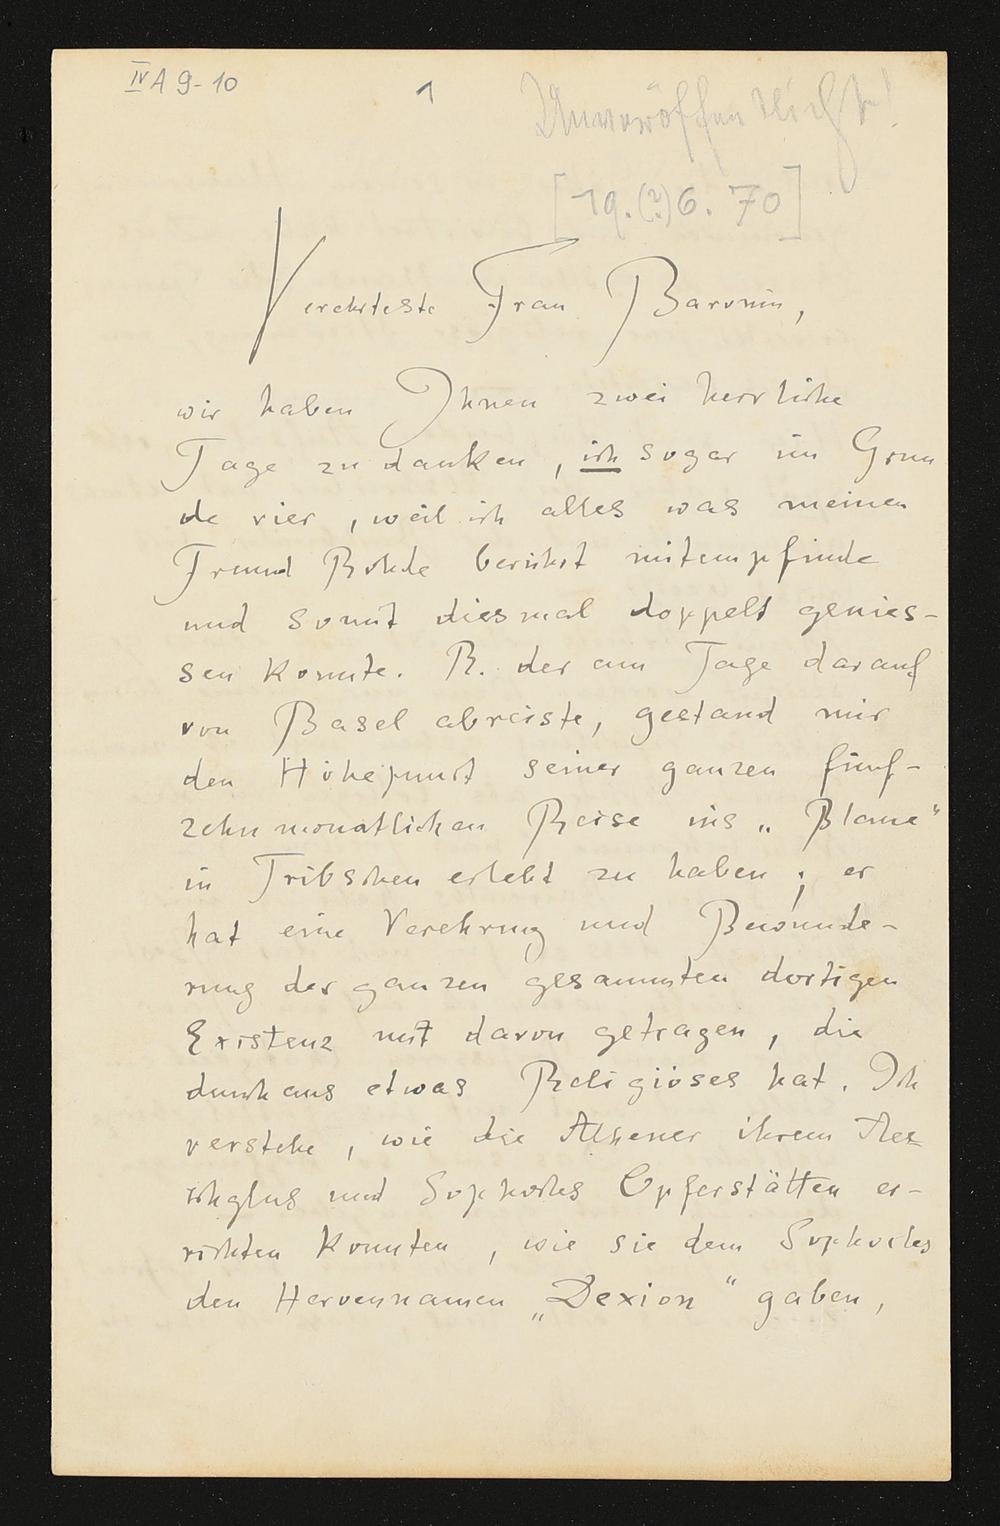 IV A 9-10
1
Unveröffentlicht!
[19.(?)6.70]
Verehrteste Frau Baronin,
wir haben Ihnen zwei herrliche
Tage zu danken, ich sogar im Grun
de vier, weil ich alles was meinen
Freund Rohde berührt mitempfinde
und somit diesmal doppelt genies-
sen konnte. R. der am Tage darauf
von Basel abreiste, gestand mir
den Höhepunct seiner ganzen fünf-
zehnmonatlichen Reise ins „Blaue"
in Tribschen erlebt zu haben; er
hat eine Verehrung und Bewunde-
rung der ganzen gesammten dortigen
Existenz mit davon getragen, die
durchaus etwas Religiöses hat. Ich
verstehe, wie die Athener ihrem Aes-
chylus und Sophocles Opferstätten er-
richten konnten, wie sie dem Sophocles
den Heroennamen „Dexion" gaben,